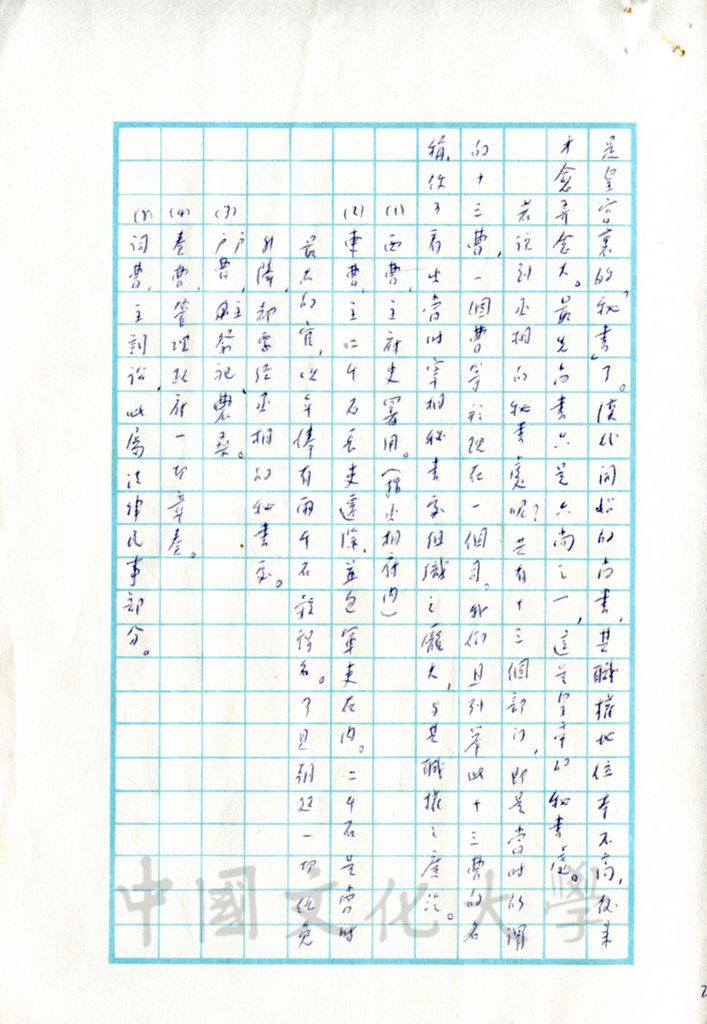 是皇宮裏的「秘書」了。漢代開始的尚書，其職權地位本不高，後來
才愈弄愈大。最先尚書只是六尚之一，這是皇帝的秘書處。
若說到丞相的秘書處呢？共有十三個部門，即是當時的謂
的十三曹，一個曹等於現在一個司。我們且列舉此十三曹的名
稱，你可看出當時宰相秘書處組織之龐大，與其職權之廣泛。
(1) 西曹，主府史署用。（指丞相府內）
(2) 東曹，主二千石長吏遷除，並包軍吏在內。二千石是當時
最大的官，以年俸有兩千石穀得名。可見朝廷一切任免
升降，都要經丞相的秘書處。
(3) 戶曹，主祭祀、農桑。
(4) 奏曹，管理政府一切章奏。
(5) 詞曹，主詞訟，此屬法律民事部分。
中國文化大學
2